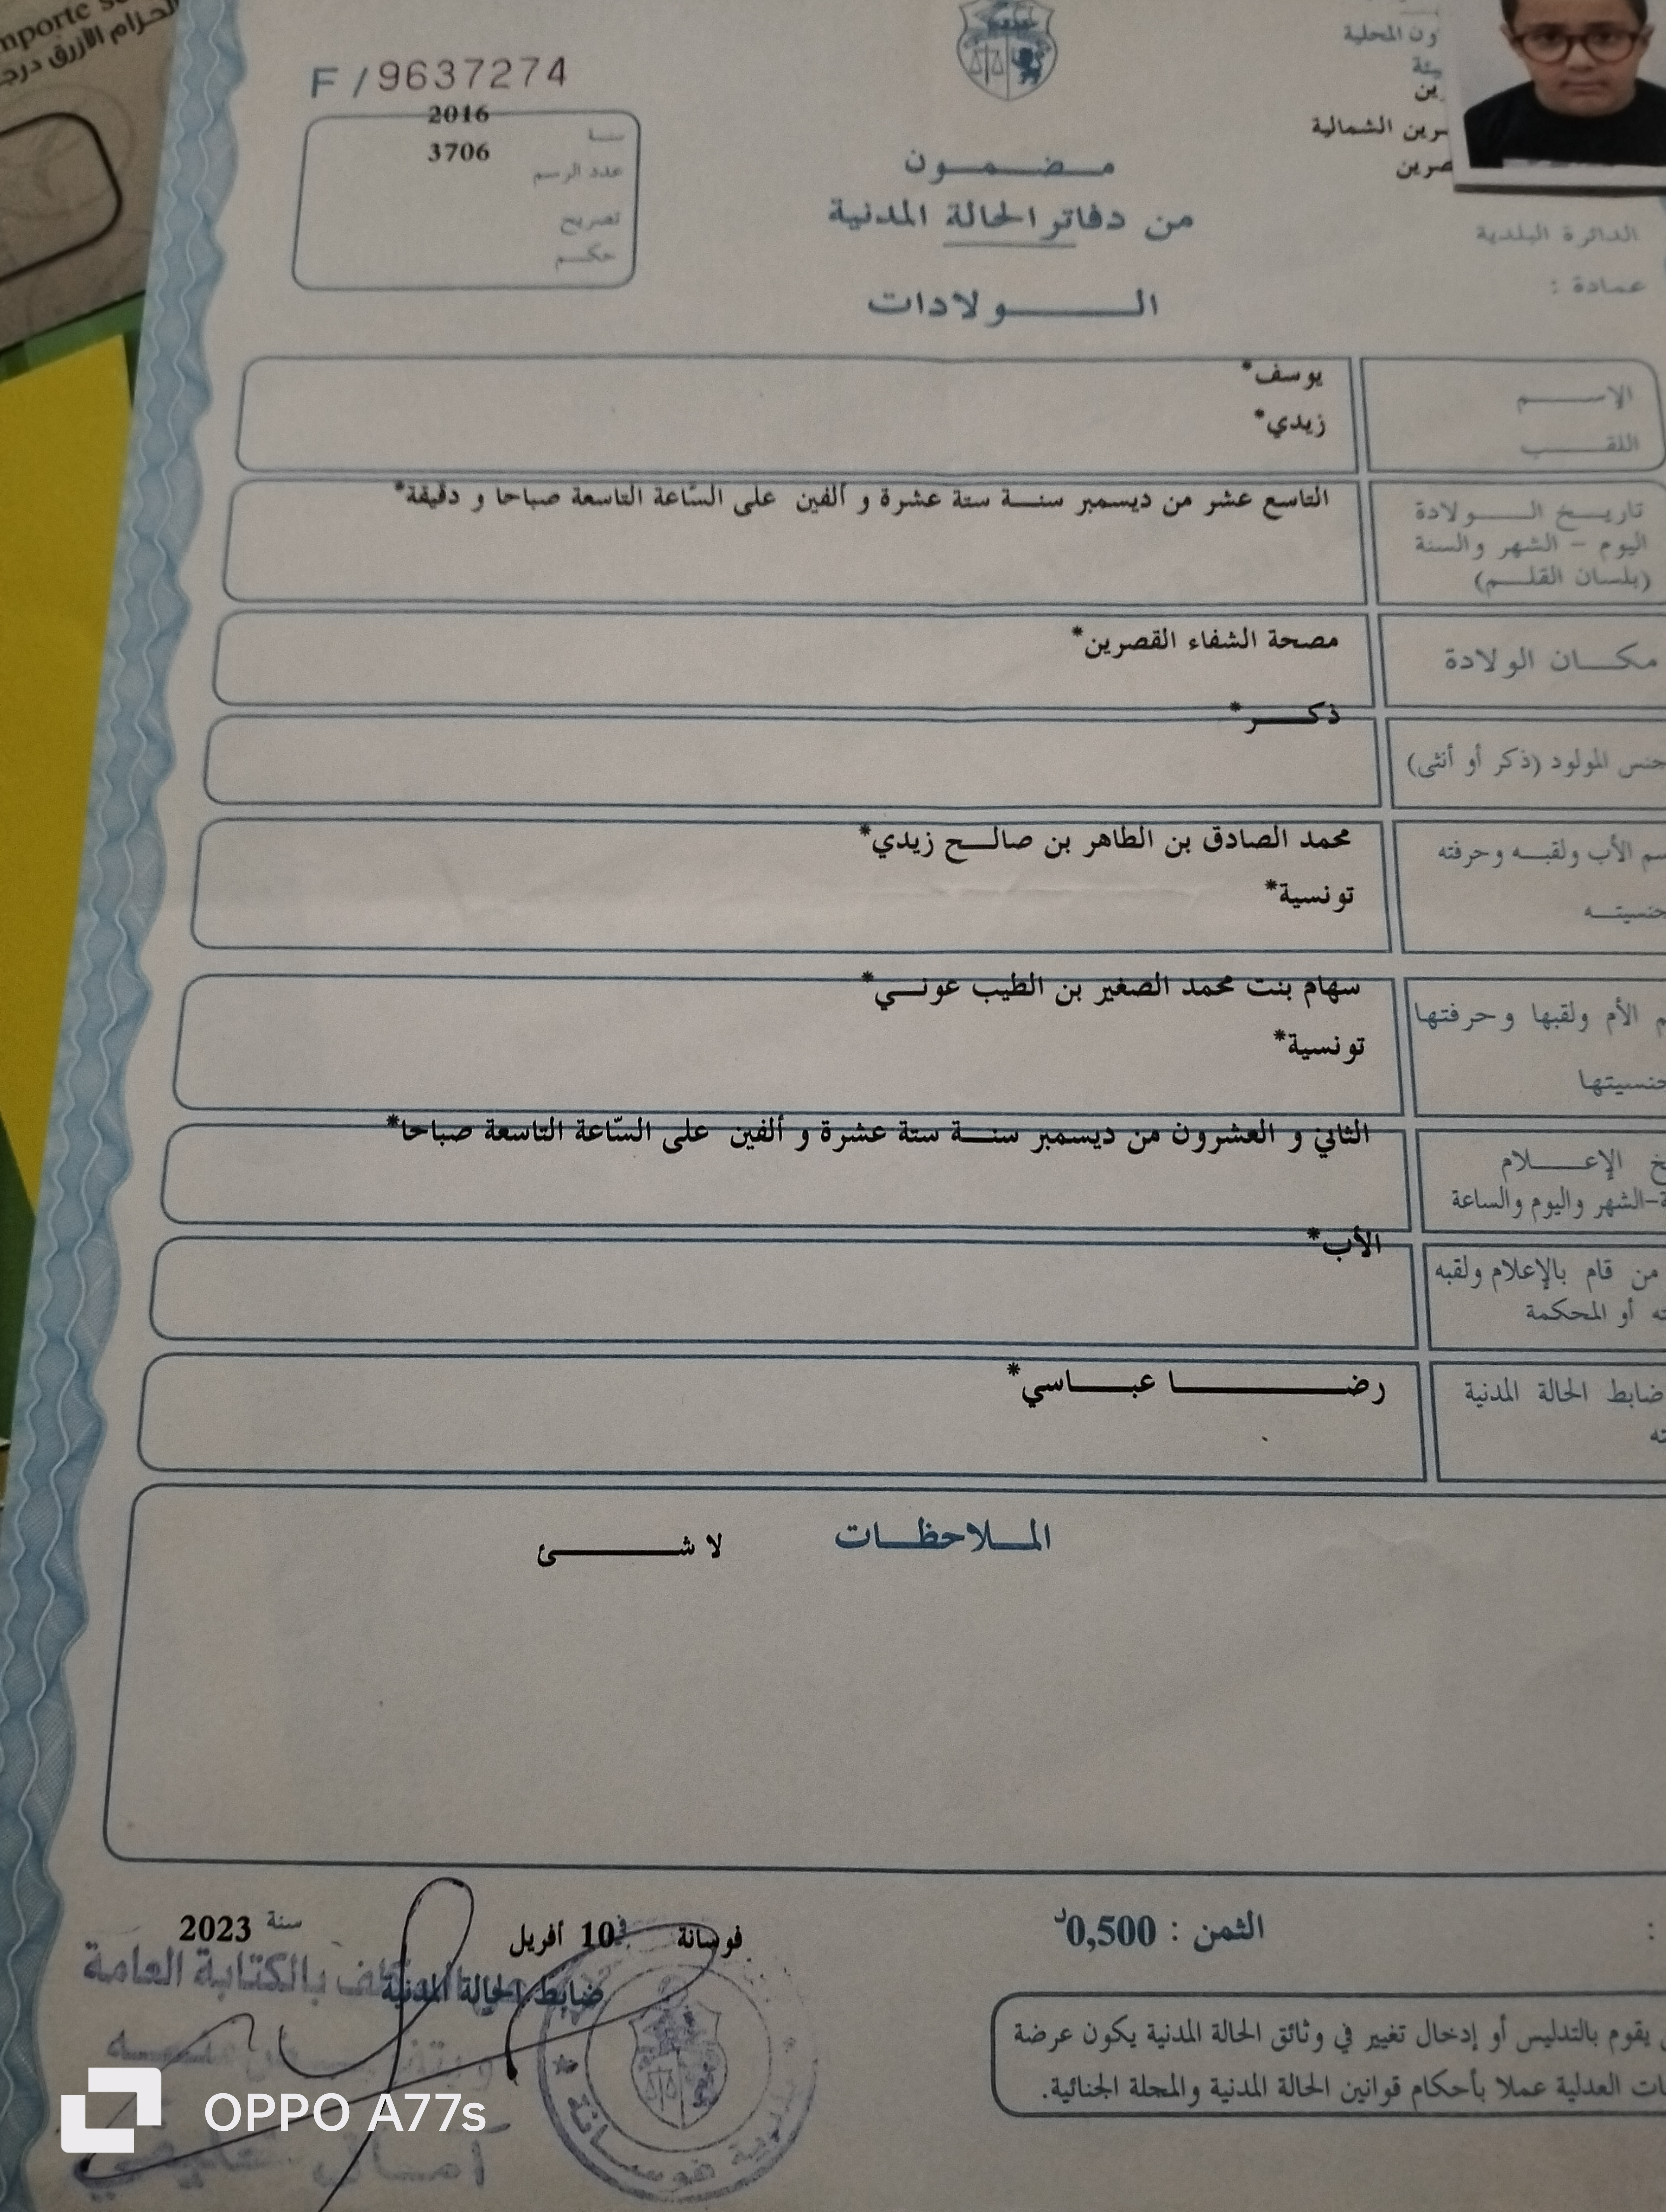 الحزام الأزرق
F / 9637274
2016
سنة
3706
عدد الرسم
تصريح
حكم
مضمون
من دفاتر الحالة المدنية
الولادات
المحلية
الشمالية
الدائرة البلدية
عمادة :
الاسم
يوسف*
اللقب
زيدي*
تاريخ الولادة
اليوم - الشهر والسنة
(بلسان القلم)
التاسع عشر من ديسمبر سنة ستة عشرة و ألفين على السّاعة التاسعة صباحا و دقيقة*
مكان الولادة
مصحة الشفاء القصرين*
المولود (ذكر أو أنثى)
ذكر*
الأب ولقبه وحرفته
محمد الصادق بن الطاهر بن صالح زيدي*
تونسية*
الأم ولقبها وحرفتها
سهام بنت محمد الصغير بن الطيب عوني*
تونسية*
الإعلام
الشهر واليوم والساعة
الثاني و العشرون من ديسمبر سنة ستة عشرة و ألفين على السّاعة التاسعة صباحا*
من قام بالإعلام ولقبه
أو المحكمة
الأب*
ضابط الحالة المدنية
رضا عباسي*
الملاحظات
لا شئ
الثمن : 0,500د
فوسانة في 10 أفريل سنة 2023
ضابط الحالة المدنية
بالكتابة العامة
يقوم بالتدليس أو إدخال تغيير في وثائق الحالة المدنية يكون عرضة
العدلية عملا بأحكام قوانين الحالة المدنية والمجلة الجنائية.
فوسانة
OPPO A77s